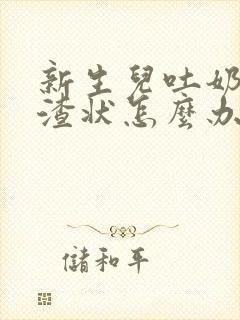 新生兒吐奶
渣狀怎麼办
儲和平